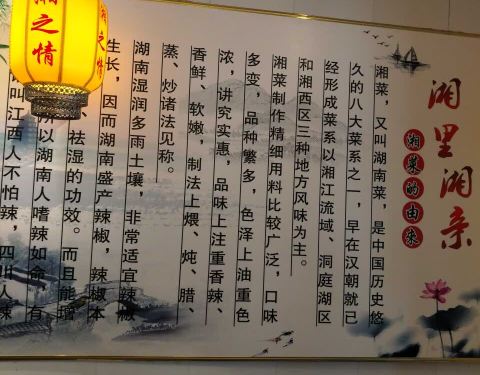 湘里湘亲
湘菜的由来
湘菜，又叫湖南菜，是中国历史悠
久的八大菜系之一，早在汉朝就已
经形成菜系以湘江流域、洞庭湖区
和湘西区三种地方风味为主。
湘菜制作精细用料比较广泛，口味
多变，品种繁多，色泽上油重色
浓，讲究实惠，品味上注重香辣、
香鲜、软嫩，制法上煨、炖、腊、
蒸、炒诸法见称。
湖南湿润多雨土壤，非常适宜辣椒
生长，因而湖南盛产辣椒，辣椒本
、祛湿的功效。而且能增
所以湖南人嗜辣如命，有
叫江西人不怕辣，四川人辣
湘之情
湘之情